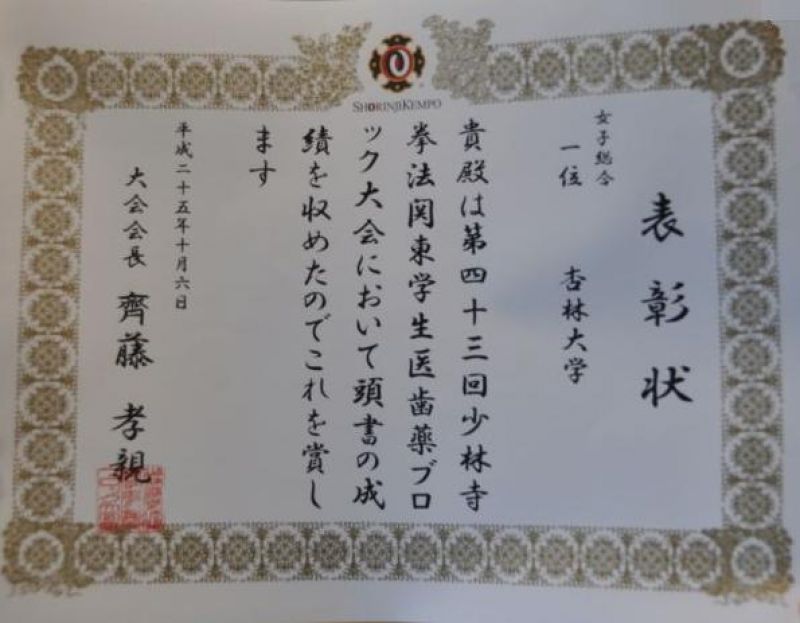 SHORINJIKEMPO
表彰状
女子総合
一位 杏林大学
貴殿は第四十三回少林寺
拳法関東学生医歯薬ブロ
ック大会において頭書の成
績を収めたのでこれを賞し
ます
平成二十五年十月六日
大会会長 齊藤 孝親